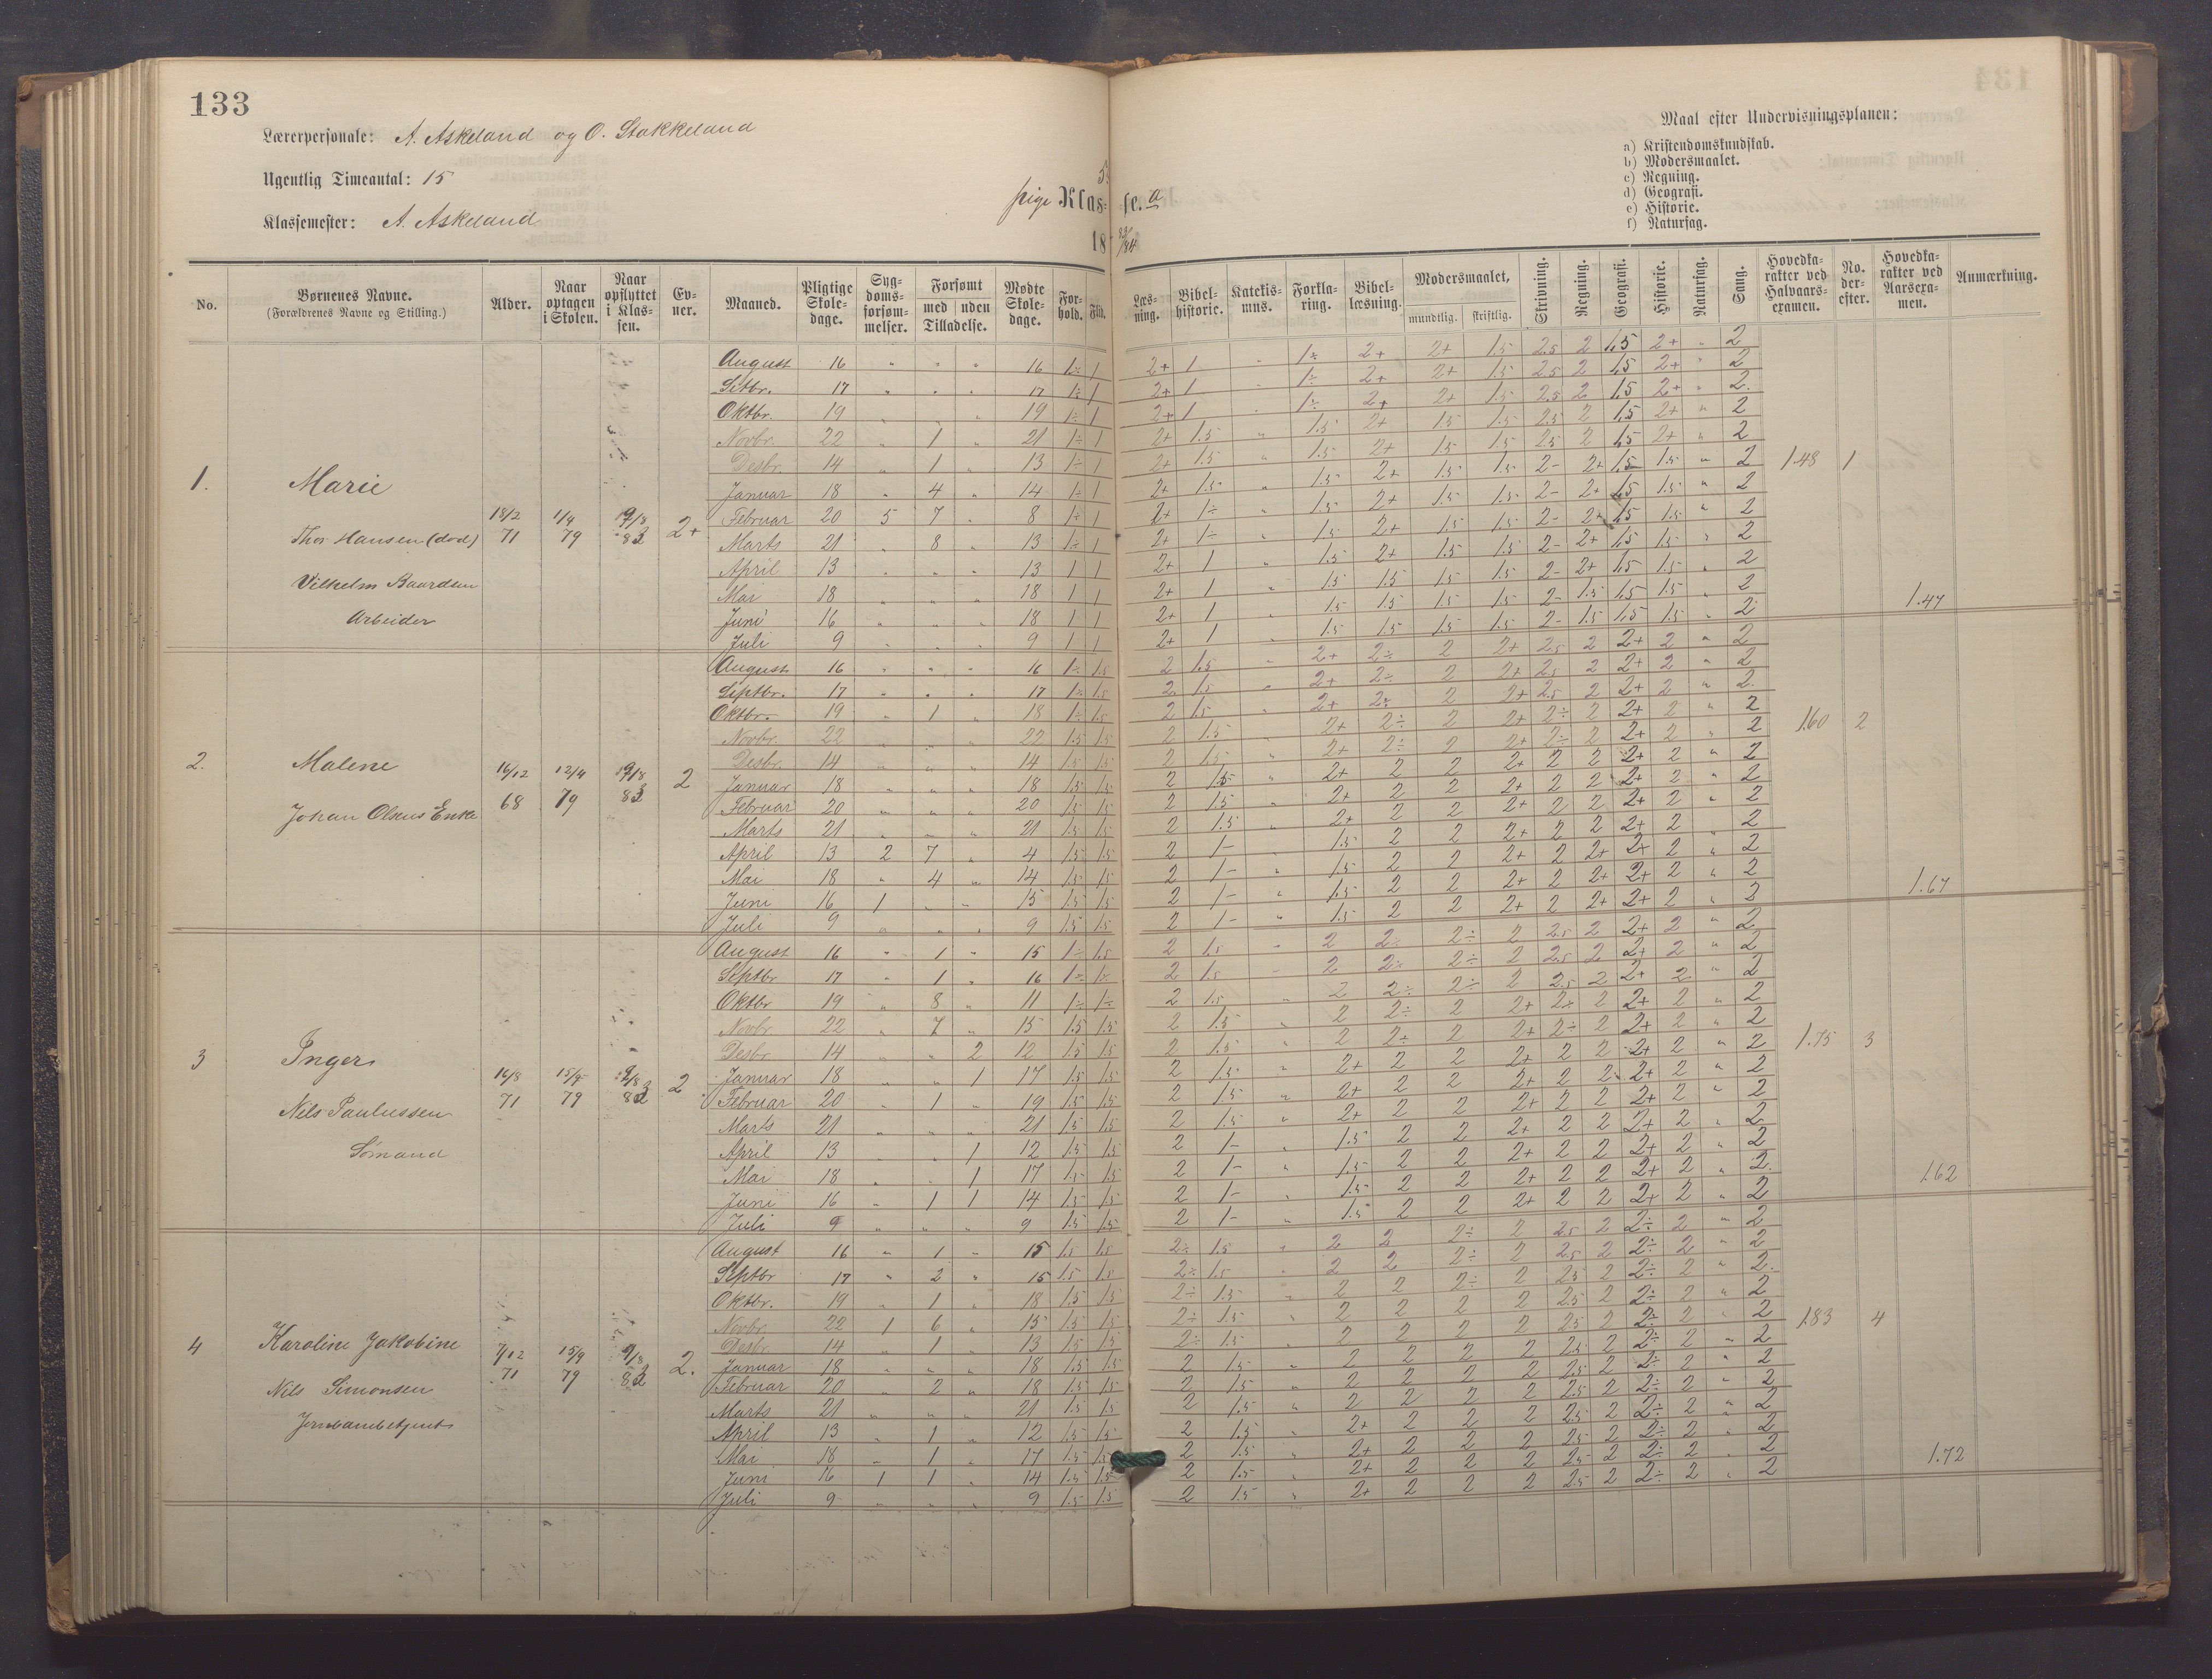 133
Lærerpersonale: A. Askeland og O. Stokkeland
Ugentlig Timeantal: 15
Klassemester: A. Askeland
5.
pige Klasse. a
18 83/84
Maal efter Undervisningsplanen:
a) Kristendomskundskab.
b) Modersmaalet.
c) Regning.
d) Geografi.
e) Historie.
f) Naturfag.
No. Børnenes Navne. (Forældrenes Navne og Stilling.) Alder. Naar optagen i Skolen. Naar opflyttet i Klassen. Evner. Maaned. Pligtige Skoledage. Sygdomsforsømmelser. Forsømt med uden Tilladelse. Mødte Skoledage. Forhold. Flid. Læsning. Bibelhistorie. Katekismus. Forklaring. Bibellæsning. Modersmaalet, mundtlig. skriftlig. Skrivning. Regning. Geografi. Historie. Naturfag. Sang. Hovedkarakter ved Halvaarsexamen. No. derefter. Hovedkarakter ved Aarsexamen. Anmærkning.
August 16 " " " 16 1÷ 1 2+ 1 " 1÷ 2+ 2+ 1.5 2.5 2 1,5 2+ " 2
Setbr. 17 " " " 17 1÷ 1 2+ 1 " 1÷ 2+ 2+ 1.5 2.5 2 1,5 2+ " 2
Oktbr. 19 " " " 19 1÷ 1 2+ 1 " 1÷ 2+ 2+ 1.5 2.5 2 1,5 2+ " 2.
Novbr. 22 " 1 " 21 1÷ 1 2+ 1.5 " 1.5 2+ 1.5 1.5 2.5 2 1,5 2+ " 2
Desbr. 14 " 1 " 13 1÷ 1 2+ 1.5 " 1.5 2+ 1.5 1.5 2.5 2 1,5 2+ " 2
1. Marie
Januar 18 " 4 " 14 1÷ 1 2+ 1.5 " 1.5 2+ 1.5 1.5 2- 2+ 1,5 1.5 " 2 1.48 1
18/2 71 1/4 79 9/8 83 2+
Februar 20 5 7 " 8 1÷ 1 2+ 1÷ " 1.5 2+ 1.5 1.5 2- 2+ 1,5 1.5 " 2
Thor Hansen (død)
Marts 21 " 8 " 13 1÷ 1 2+ 1÷ " 1.5 2+ 1.5 1.5 2- 2+ 1,5 1.5 " 2
April 13 " " " 13 1 1 2+ 1 " 1.5 2+ 1.5 1.5 2- 2+ 1,5 1.5 " 2
Vilhelm Baardsen
Mai 18 " " " 18 1 1 2+ 1 " 1.5 1.5 1.5 1.5 2- 2+ 1,5 1.5 " 2
Arbeider
Juni 16 " " " 18 1 1 2+ 1 " 1.5 1.5 1.5 1.5 2- 1.5 1,5 1.5 " 2 1.47
Juli 9 " " " 9 1 1 2+ 1 " 1.5 1.5 1.5 1.5 2- 1.5 1,5 1.5 " 2
August 16 " " " 16 1÷ 1.5 2 1.5 " 2+ 2÷ 2 2+ 2.5 2 2+ 2 " 2
Septbr. 17 " " " 17 1÷ 1.5 2 1.5 " 2+ 2÷ 2 2+ 2.5 2 2+ 2 " 2
Oktbr. 19 " 1 " 18 1÷ 1.5 2 1.5 " 2+ 2÷ 2 2+ 2.5 2 2+ 2 " 2.
Novbr. 22 " " " 22 1.5 1.5 2 1.5 " 2+ 2÷ 2 2+ 2÷ 2 2+ 2 " 2 1.60 2
Desbr. 14 " " " 14 1.5 1.5 2 1.5 " 2+ 2÷ 2 2+ 2÷ 2 2+ 2 " 2
2. Malene
16/12 68 12/4 79 9/8 83 2
Januar 18 " " " 18 1.5 1.5 2 1.5 " 2+ 2 2 2+ 2 2 2+ 2 " 2
Johan Olsens Enke
Februar 20 " " " 20 1.5 1.5 2 1.5 " 2+ 2 2 2+ 2 2 2+ 2 " 2
Marts 21 " " " 21 1.5 1.5 2 1.5 " 2+ 2 2 2+ 2 2 2+ 2 " 2
April 13 2 7 " 4 1.5 1.5 2 1- " 1.5 2 2 2+ 2 2 2+ 2 " 2
Mai 18 " 4 " 14 1.5 1.5 2 1- " 1.5 2 2 2+ 2 2+ 2+ 2 " 2
Juni 16 1 " " 15 1.5 1.5 2 1- " 1.5 2 2 2+ 2 2+ 2+ 2 " 2 1.67
Juli 9 " " " 9 1.5 1.5 2 1- " 1.5 2 2 2+ 2 2+ 2+ 2 " 2
August 16 " 1 " 15 1÷ 1.5 2 1.5 " 2 2÷ 2÷ 2 2.5 2 2+ 2 " 2
Septbr 17 " 1 " 16 1÷ 1÷ 2 1.5 " 2 2÷ 2÷ 2 2.5 2 2+ 2 " 2
Oktbr 19 " 8 " 11 1÷ 1÷ 2 1.5 " 2 2÷ 2÷ 2 2.5 2 2+ 2 " 2
Novbr 22 " 7 " 15 1.5 1.5 2 1.5 " 2 2÷ 2 2+ 2÷ 2 2+ 2 " 2
Desbr 14 " " 2 12 1.5 1.5 2 1.5 " 2 2÷ 2 2+ 2÷ 2 2+ 2 " 2
3 Inger
Januar 18 " " 1 17 1.5 1.5 2 1.5 " 2+ 2 2 2+ 2 2 2+ 2 " 2 1.75 3
16/8 71 15/9 79 9/8 83 2
Februar 20 " 1 " 19 1.5 1.5 2 1.5 " 2+ 2 2 2+ 2 2 2+ 2 " 2
Nils Paulussen
Marts 21 " " " 21 1.5 1.5 2 1.5 " 2+ 2 2 2+ 2 2 2+ 2 " 2
Sømand
April 13 " " 1 12 1.5 1.5 2 1- " 1.5 2 2 2+ 2 2 2+ 2 " 2
Mai 18 " " 1 17 1.5 1.5 2 1- " 1.5 2 2 2+ 2 2 2+ 2 " 2
Juni 16 " 1 1 14 1.5 1.5 2 1- " 1.5 2 2 2+ 2 2 2+ 2 " 2. 1.62
Juli 9 " " " 9 1.5 1.5 2 1- " 1.5 2 2 2+ 2 2 2+ 2 " 2
August 16 " 1 " 15 1.5 1.5 2÷ 1.5 " 2 2 2÷ 2 2.5 2 2÷ 2 " 2
Septbr 17 " 2 " 15 1.5 1.5 2÷ 1.5 " 2 2 2÷ 2 2.5 2 2÷ 2 " 2
Oktbr. 19 " 1 " 18 1.5 1.5 2÷ 1.5 " 2 2 2÷ 2 2.5 2 2÷ 2 " 2.
Novbr 22 1 6 " 15 1.5 1.5 2÷ 1.5 " 2 2 2 2 2.5 2 2÷ 2 " 2
Desbr. 14 " 1 " 13 1.5 1.5 2÷ 1.5 " 2 2 2 2 2.5 2 2÷ 2 " 2 1.83 4
4 Karoline Jakobine
7/12 71 15/9 79 9/8 83 2.
Januar 18 " " " 18 1.5 1.5 2 1.5 " 2 2 2 2 2.5 2 2÷ 2 " 2
Nils Simonsen
Februar 20 " 2 " 18 1.5 1.5 2 1.5 " 2 2 2 2 2.5 2 2÷ 2 " 2
Jernbanebetjent
Marts 21 " " " 21 1.5 1.5 2 1.5 " 2 2 2 2 2.5 2 2÷ 2 " 2
April 13 " 1 " 12 1.5 1.5 2 1.5 " 2+ 2 2 2 2.5 2 2÷ 2 " 2
Mai 18 " 1 " 17 1.5 1.5 2 1.5 " 2+ 2 2 2 2.5 2 2÷ 2 " 2
Juni 16 1 1 " 14 1.5 1.5 2 1.5 " 2+ 2 2 2 2.5 2 2÷ 2 " 2 1.72
Juli 9 " " " 9 1.5 1.5 2 1.5 " 2+ 2 2 2 2.5 2 2÷ 2 " 2